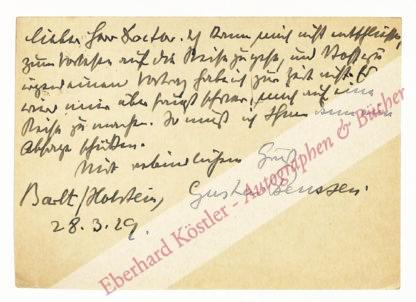 Lieber Herr Doctor. Ich kann mich nicht entschließen,
zum Vorlesen auf die Reise zu gehen, und Stoff zu
irgend einem Vortrag habe ich zur Zeit nicht. Es
wird mir überhaupt schwer, mich auf eine
Reise zu machen. So muß ich Ihnen
Absage schicken.
Mit verbindlichem Gruß
Barlt/Holstein, Gustav Frenssen.
28.3.29.
Eberhard Köstler - Autographen & Bücher